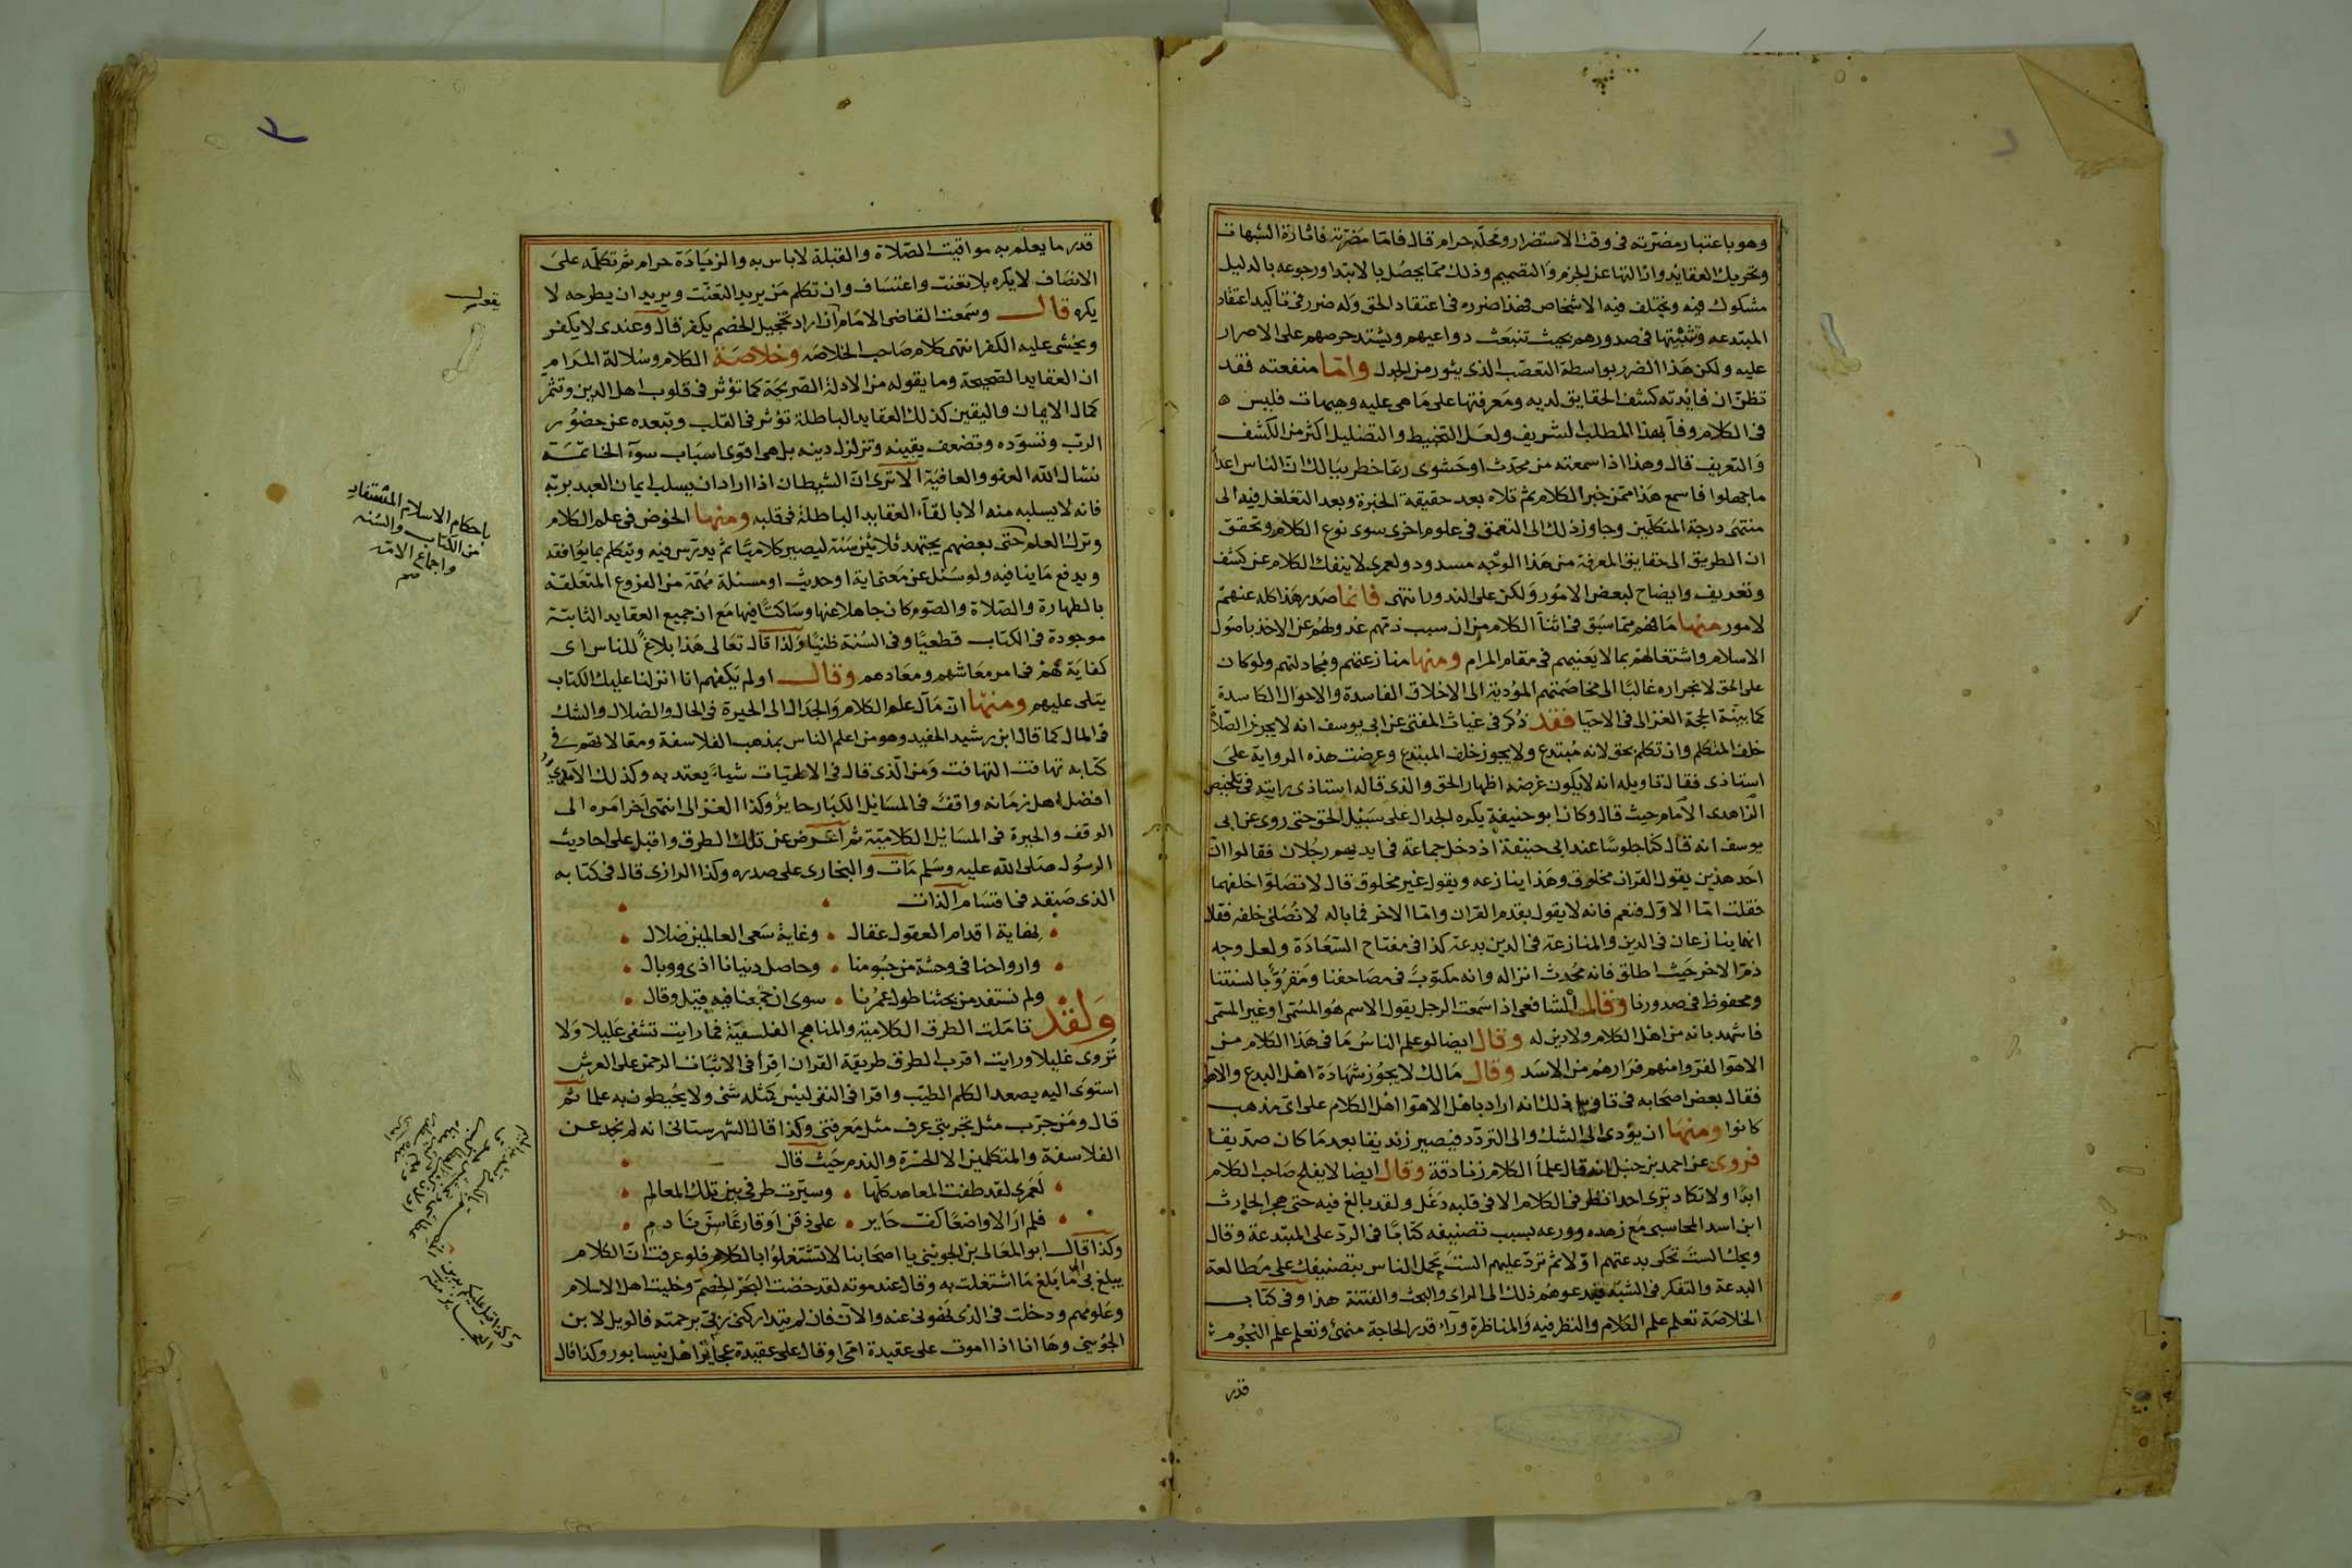 وهو باعتبار مضرته في وقت الاستضرار ومحله حرام قال فاما مضرته فاثارة الشبهات
وتحريك العقايد وازالتها عن الجزم والتصميم وذلك مما يحصل بالابتدا ورجوعه بالدليل
مشكوك فيه ويختلف فيه الاشخاص فهذا ضرره في اعتقاد الحق وله ضرر في تاكيد اعتقاد
المبتدعه وتثبيتها في صدورهم بحيث تنبعث دواعيهم ويشتد حرصهم على الاصرار
عليه ولكن هذا الضرر بواسطة التعصب الذي يثور من الجدل واما منفعته فقد
تظن ان فائدته كشف الحقايق لديه ومعرفتها على ما هي عليه وهيهات فليس
في الكلام وفآ بهذا المطلب الشريف ولعل التخبيط والتضليل اكثر من الكشف
والتعريف قال وهذا اذا سمعته من محدث او حشوي ربما خطر ببالك ان الناس اعدا
ما جهلوا فاسمع هذا ممن خبر الكلام ثم قلاه بعد حقيقة الخبرة وبعد التغلغل فيه الى
منتهى درجة المتكلمين وجاوز ذلك الى التعمق في علوم اخرى سوى نوع الكلام وتحقق
ان الطريق الى حقايق المعرفة من هذا الوجه مسدود ولعمري لا ينفك الكلام عن كشف
وتعريف وايضاح لبعض الامور ولكن على الندور انتهى فانما صدر هذا كله عنهم
لامور منها ما فهم مما سبق في اثنآ الكلام من ان سبب ذمهم عدولهم عن الاخذ باصول
الاسلام واشتغالهم بما لا يعنيهم في مقام المرام ومنها منازعتهم ومجادلتهم ولو كان
على الحق لانجراره غالبا الى مخاصمتهم المؤدية الى الاخلاق الفاسدة والاحوال الكاسدة
كما بينه الحجة الغزالي في الاحيا فقد ذكر في غياث المفتي عن ابي يوسف انه لا يجوز الصلاة
خلف المتكلم وان تكلم بحق لانه مبتدع ولا يجوز خلف المبتدع وعرضت هذه الرواية على
استاذي فقال تاويله انه لا يكون غرضه اظهار الحق والذي قاله استاذي رايته في تلخيص
الزاهدي الامام حيث قال وكان ابو حنيفة يكره الجدال على سبيل الحق حتى روي عن ابي
يوسف انه قال كنا جلوسا عند ابي حنيفة اذ دخل جماعة في ايديهم رجلان فقالوا ان
احد هذين يقول القران مخلوق وهذا ينازعه ويقول غير مخلوق قال لا تصلوا خلفهما
فقلت اما الاول فنعم فانه لا يقول بقدم القران واما الاخر فما باله لا تصلي خلفه فقال
انهما ينازعان في الدين والمنازعة في الدين بدعة كذا في مفتاح السعادة ولعل وجه
ذم الاخر حيث اطلق فانه محدث انزاله وانه مكتوب في مصاحفنا ومقروّ بالسنتنا
ومحفوظ في صدورنا وقال الشافعي اذا سمعت الرجل يقول الاسم هو المسمى او غير المسمى
فاشهد بانه من اهل الكلام ولا دين له وقال ايضا لو علم الناس ما في هذا الكلام من
الاهوآ لفروا منهم فرارهم من الاسد وقال مالك لا يجوز شهادة اهل البدع والاهوا
فقال بعض اصحابه في تاويل ذلك انه اراد باهل الاهوا اهل الكلام على اي مذهب
كانوا ومنها ان يؤدي الى الشك والى التردد فيصير زنديقا بعد ما كان صديقا
فروي عن احمد بن حنبل انه قال علمآ الكلام زنادقة وقال ايضا لا يفلح صاحب الكلام
ابدا ولا تكاد ترى احدا نظر في الكلام الا في قلبه دغل ولقد بالغ فيه حتى هجر الحارث
ابن اسد المحاسبي مع زهده وورعه بسبب تصنيفه كتابا في الرد على المبتدعة وقال
ويحك الست تحكي بدعتهم اولا ثم ترد عليهم الست تحمل الناس بتصنيفك على مطالعة
البدعة والتفكر في الشبه فيدعوهم ذلك الى الراي والبحث والفتنة هذا وفي كتاب
الخلاصة تعلم علم الكلام والنظر فيه والمناظرة ورآ قدر الحاجة منهي وتعلم علم النجوم
قدر
قدر ما يعلم به مواقيت الصلاة والقبلة لا باس به والزيادة حرام ثم تكلمه على
الانصاف لا يكره بلا تعنت واعتساف وان تكلم من يريد التعنت ويريد ان يطرحه لا
يكره قال وسمعت القاضي الامام ان اراد تخجيل الخصم يكفر قال وعندي لا يكفر
ويخشى عليه الكفر انتهى كلام صاحب الخلاصه وخلاصة الكلام وسلالة المرام
ان العقايد الصحيحة وما يقوله من الادلة الصريحة كما تؤثر في قلوب اهل الدين وتثمر
كمال الايمان واليقين كذلك العقايد الباطلة تؤثر في القلب وتبعده عن حضور
الرب وتسوده وتضعف يقينه وتزلزل دينه بل هي اقوى اسباب سوآ الخاتمة
نسال الله العفو والعافية الا ترى ان الشيطان اذا اراد ان يسلب ايمان العبد بربه
فانه لا يسلبه منه الا بالقآء العقايد الباطلة في قلبه ومنها الخوض في علم الكلام
وترك العلم حتى بعضهم يجتهد ثلاثين سنة ليصير كلاميا ثم يدرس فيه ويتكلم بما يوافقه
ويدفع ما ينافيه ولو سئل عن معنى اية او حديث او مسئلة مهمة من الفروع المتعلقة
بالطهارة والصلاة والصوم كان جاهلا عنها وساكتا فيها مع ان جميع العقايد الثابتة
موجودة في الكتاب قطعيا وفي السنة ظنيا ولذا قال تعالى هذا بلاغ للناس اي
كفاية لهم في امر معاشهم ومعادهم وقال اولم يكفهم انا انزلنا عليك الكتاب
يتلى عليهم ومنها ان مآل علم الكلام والجدال الى الحيرة في الحال والضلال والشك
في المال كما قال ابن رشيد الحفيد وهو من اعلم الناس بمذهب الفلاسفة ومقالاتهم في
كتابه تهافت التهافت ومن الذي قال في الالهيات شياء يعتد به وكذلك الآمدي
افضل اهل زمانه واقف في المسايل الكبار حاير وكذا الغزالي انتهى اخر امره الى
الوقف والحيرة في المسايل الكلامية ثم اعرض عن تلك الطرق واقبل على احاديث
الرسول صلى الله عليه وسلم مات والبخاري على صدره وكذا الرازي قال في كتابه
الذي صنفه في اقسام الذات
نهاية اقدام العقول عقال وغاية سعي العالمين ضلال
وارواحنا في وحشة من جسومنا وحاصل دنيانا اذى ووبال
ولم نستفد من بحثنا طول عمرنا سوى ان جمعنا فيه قيل وقال
ولقد تاملت الطرق الكلامية والمناهج الفلسفية فما رايت تشفي عليلا ولا
تروي غليلا ورايت اقرب الطرق طريقة القران اقرأ في الاثبات الرحمن على العرش
استوى اليه يصعد الكلم الطيب واقرا في النفي ليس كمثله شئ ولا يحيطون به علما ثم
قال ومن جرب مثل تجربتي عرف مثل معرفتي وكذا قال الشهرستاني انه لم يجد عن
الفلاسفة والمتكلمين الا الحسرة والندم حيث قال
لعمري لقد طفت المعاهد كلها وسيرت طرفي بين تلك المعالم
فلم ار الا واضعا كف حاير على ذقن او قارعا سن نادم
وكذا قال ابو المعالي بن الجويني يا اصحابنا لا تشتغلوا بالكلام فلو عرفت ان الكلام
يبلغ بي الى ما بلغ ما اشتغلت به وقال عند موته لقد خضت البحر الخضم وخليت اهل الاسلام
وعلومهم ودخلت في الذي نهوني عنه والآن فان لم يتداركني ربي برحمته فالويل لابن
الجويني وها انا اذا اموت على عقيدة امي او قال على عقيدة عجائز اهل نيسابور وكذا قال
باحكام الاسلام المستفاد
من الكتاب والسنه
واجماع الامه
صح